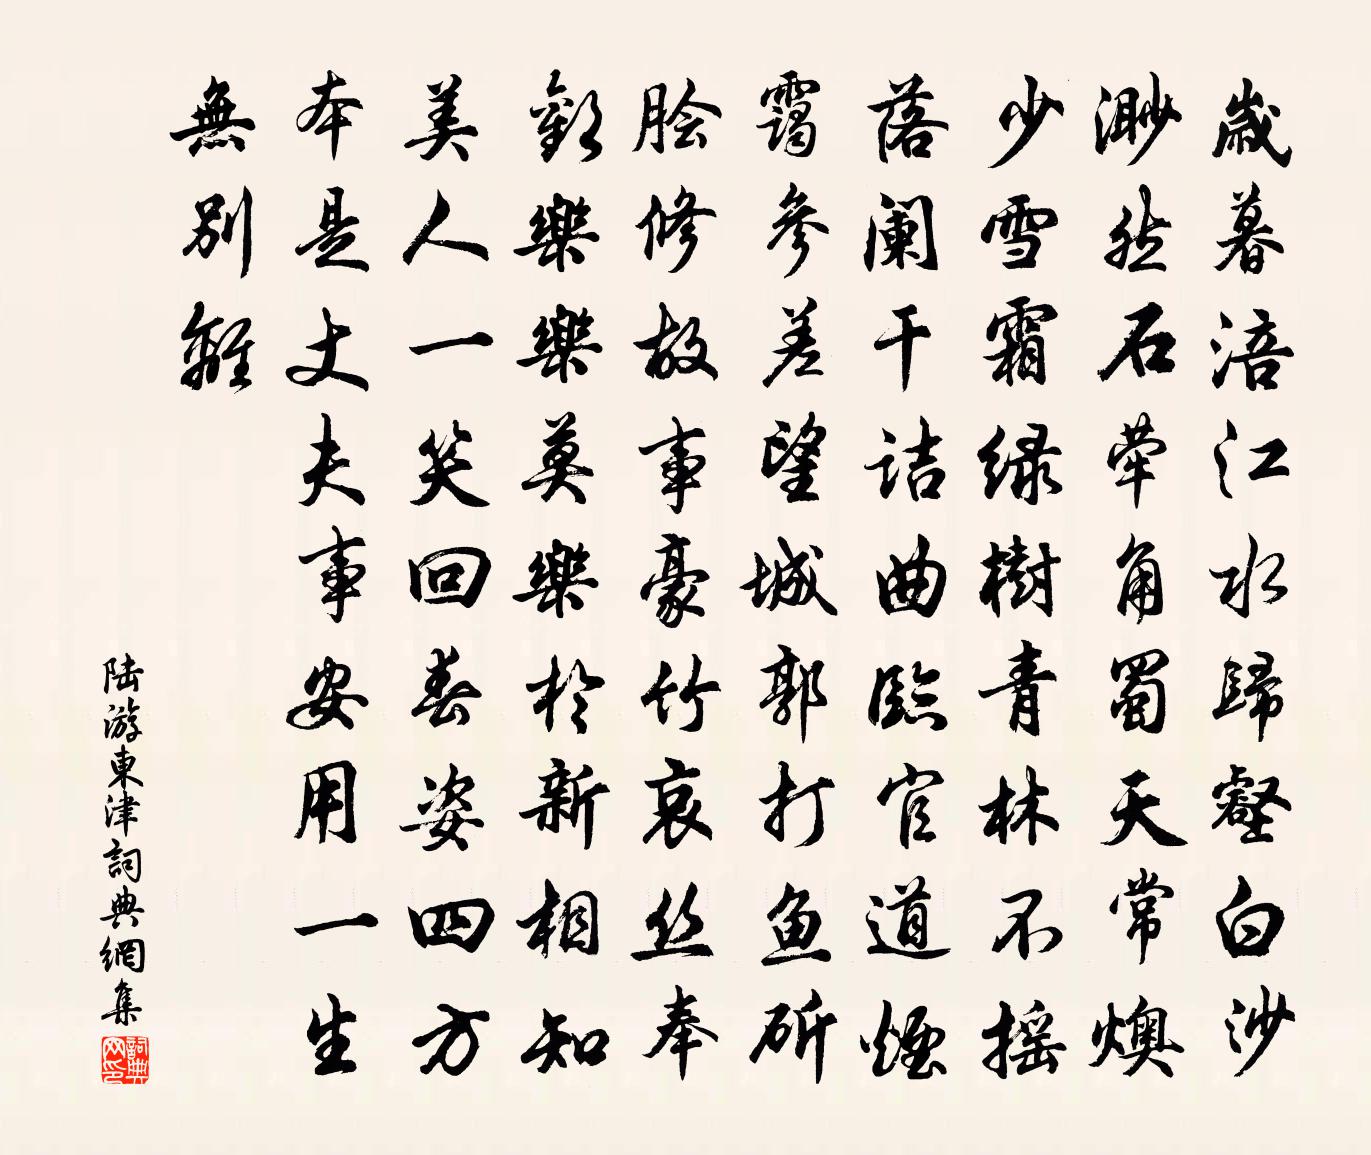 歲暮涪江水歸壑白沙
渺然石犖角蜀天常燠
少雪霜綠樹青林不搖
落闌干詰曲臨官道煙
靄參差望城郭打魚斫
膾修故事豪竹哀絲奉
歡樂樂莫樂於新相知
美人一笑回春姿四方
本是丈夫事安用一生
無別離
陸游東津詞典網集
詞典网印